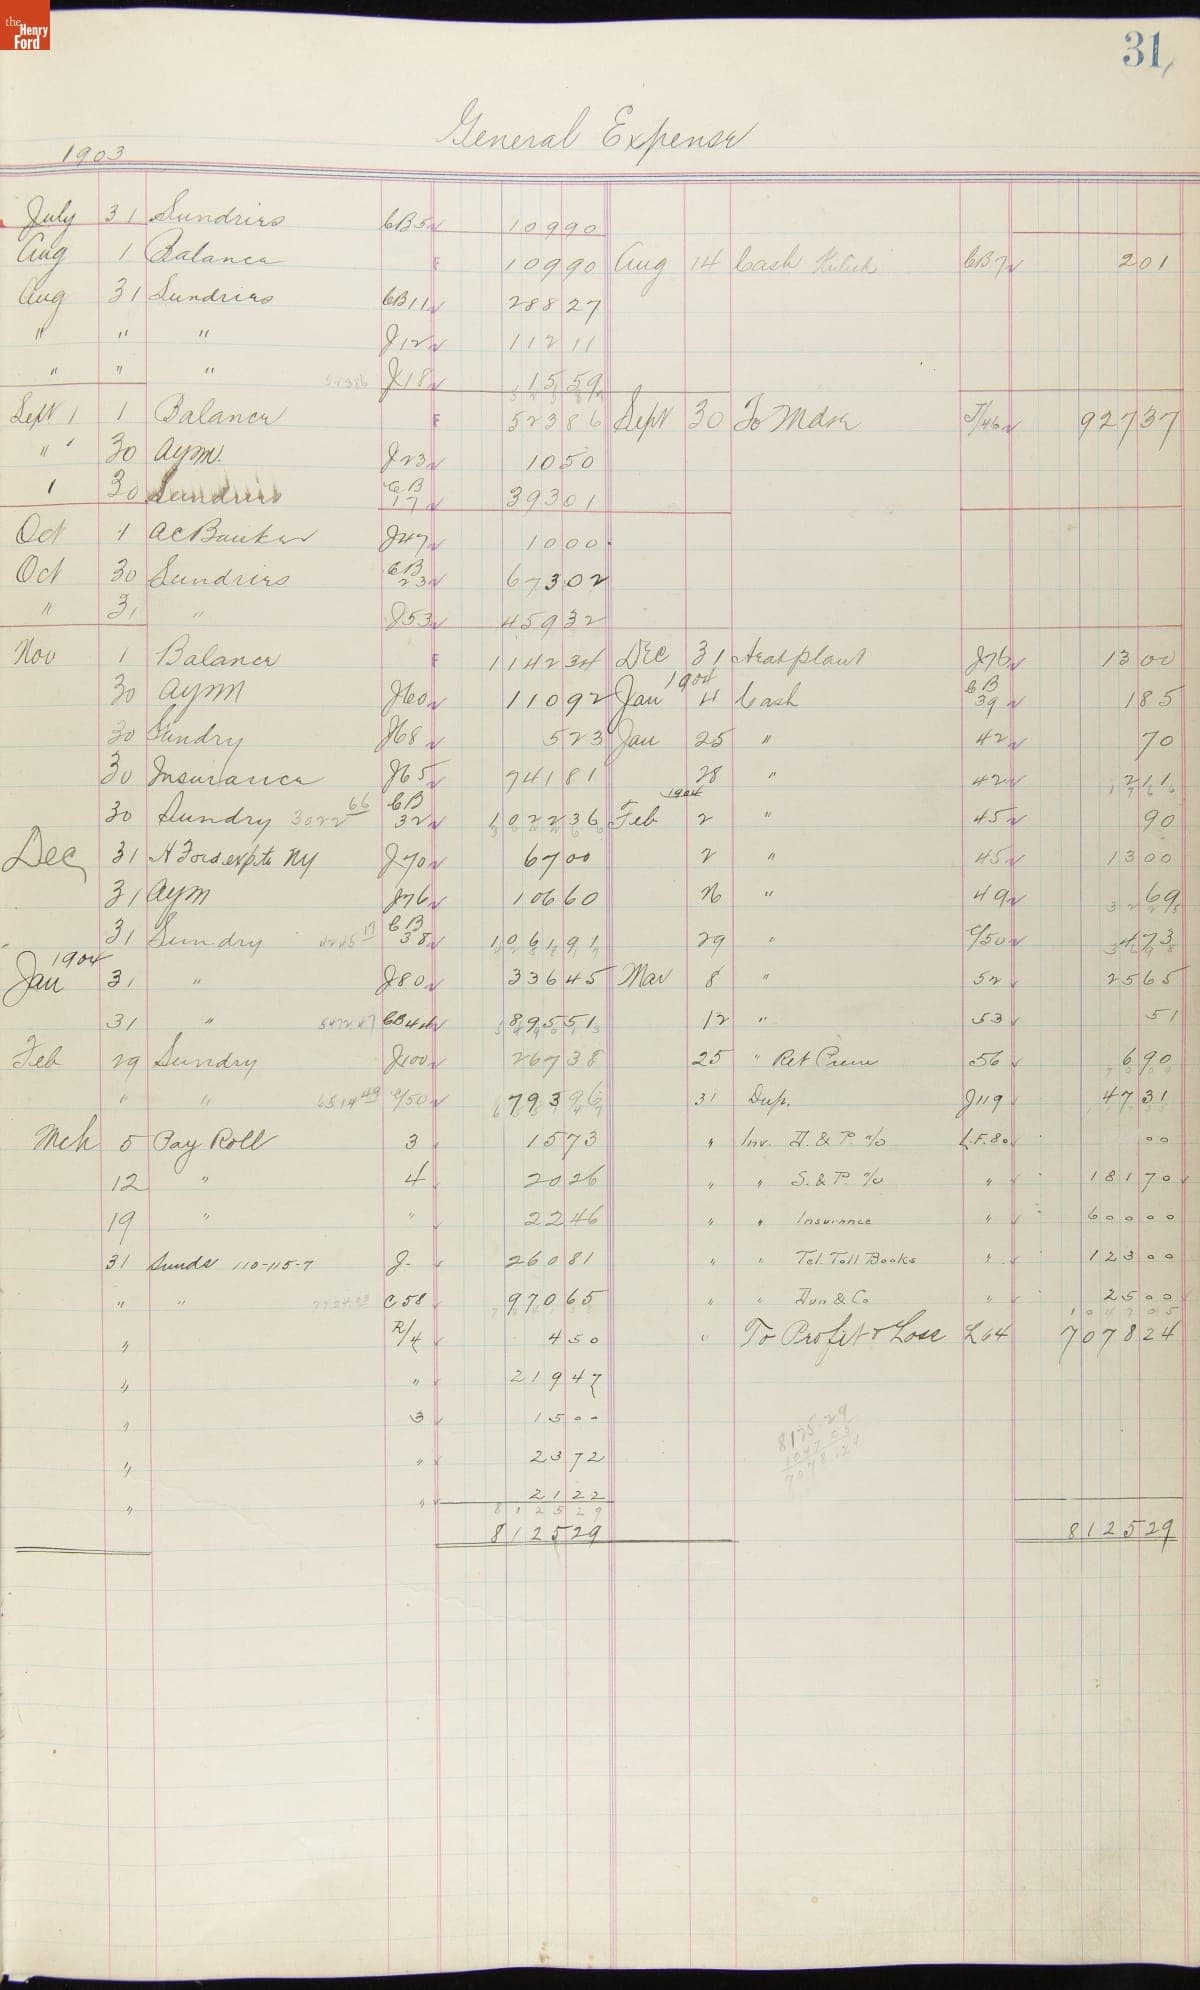 the Henry Ford
31
General Expense
1903
July 31 Sundries CB5 109 90
Aug 1 Balance F 109 90 Aug 14 Cash CB7 2 01
Aug 31 Sundries CB11 288 27
" " " J12 112 11
" " " 523 86 J18 15 59
Sept 1 1 Balance F 523 86 Sept 30 To Mdse J/46 927 37
" " 30 aym. J23 10 50
30 Sundries CB 17 393 01
Oct 1 J47 10 00
Oct 30 Sundries CB 23 673 02
" 31 " J53 459 32
Nov 1 Balance F 1142 34 Dec 31 Heat plant J76 13 00
30 aym J60 110 92 1904 Jan 4 Cash CB 39 1 85
30 Sundry J68 5 23 Jan 25 " 42 70
30 Insurance J65 741 81 28 " 42 2 11
30 Sundry 3022 66 CB 32 1022 36 1904 Feb 2 " 45 90
Dec 31 H Ford exp to NY J70 67 00 2 " 45 13 00
31 aym J76 106 60 26 " 49 69
31 Sundry 4245 17 CB 38 1061 91 29 " C/50 4 73
1904 Jan 31 " J80 336 45 Mar 8 " 52 25 65
31 " 5472 47 CB44 895 51 12 " 53 51
Feb 29 Sundry J100 267 38 25 " Ret Prem 56 6 90
" " 6514 49 C/50 793 96 31 Dup. J119 47 31
Mch 5 Pay Roll 3 15 73 " Inv. A. & P. a/c L.F.80 00
12 " 4 20 26 " " S. & P. a/c " 181 70
19 " " 22 46 " " Insurance " 600 00
31 Sunds 110-115-7 J. 260 81 " " Tel. Toll Books " 123 00
" " C58 970 65 " " Dun & Co " 25 00
1047 05
" R/4 4 50 " To Profit & Loss L64 7078 24
" " 219 47
" 3 15 00
" " 23 72
" " 21 22
8125 29
1047 05
7078 24
8125 29
8125 29 8125 29